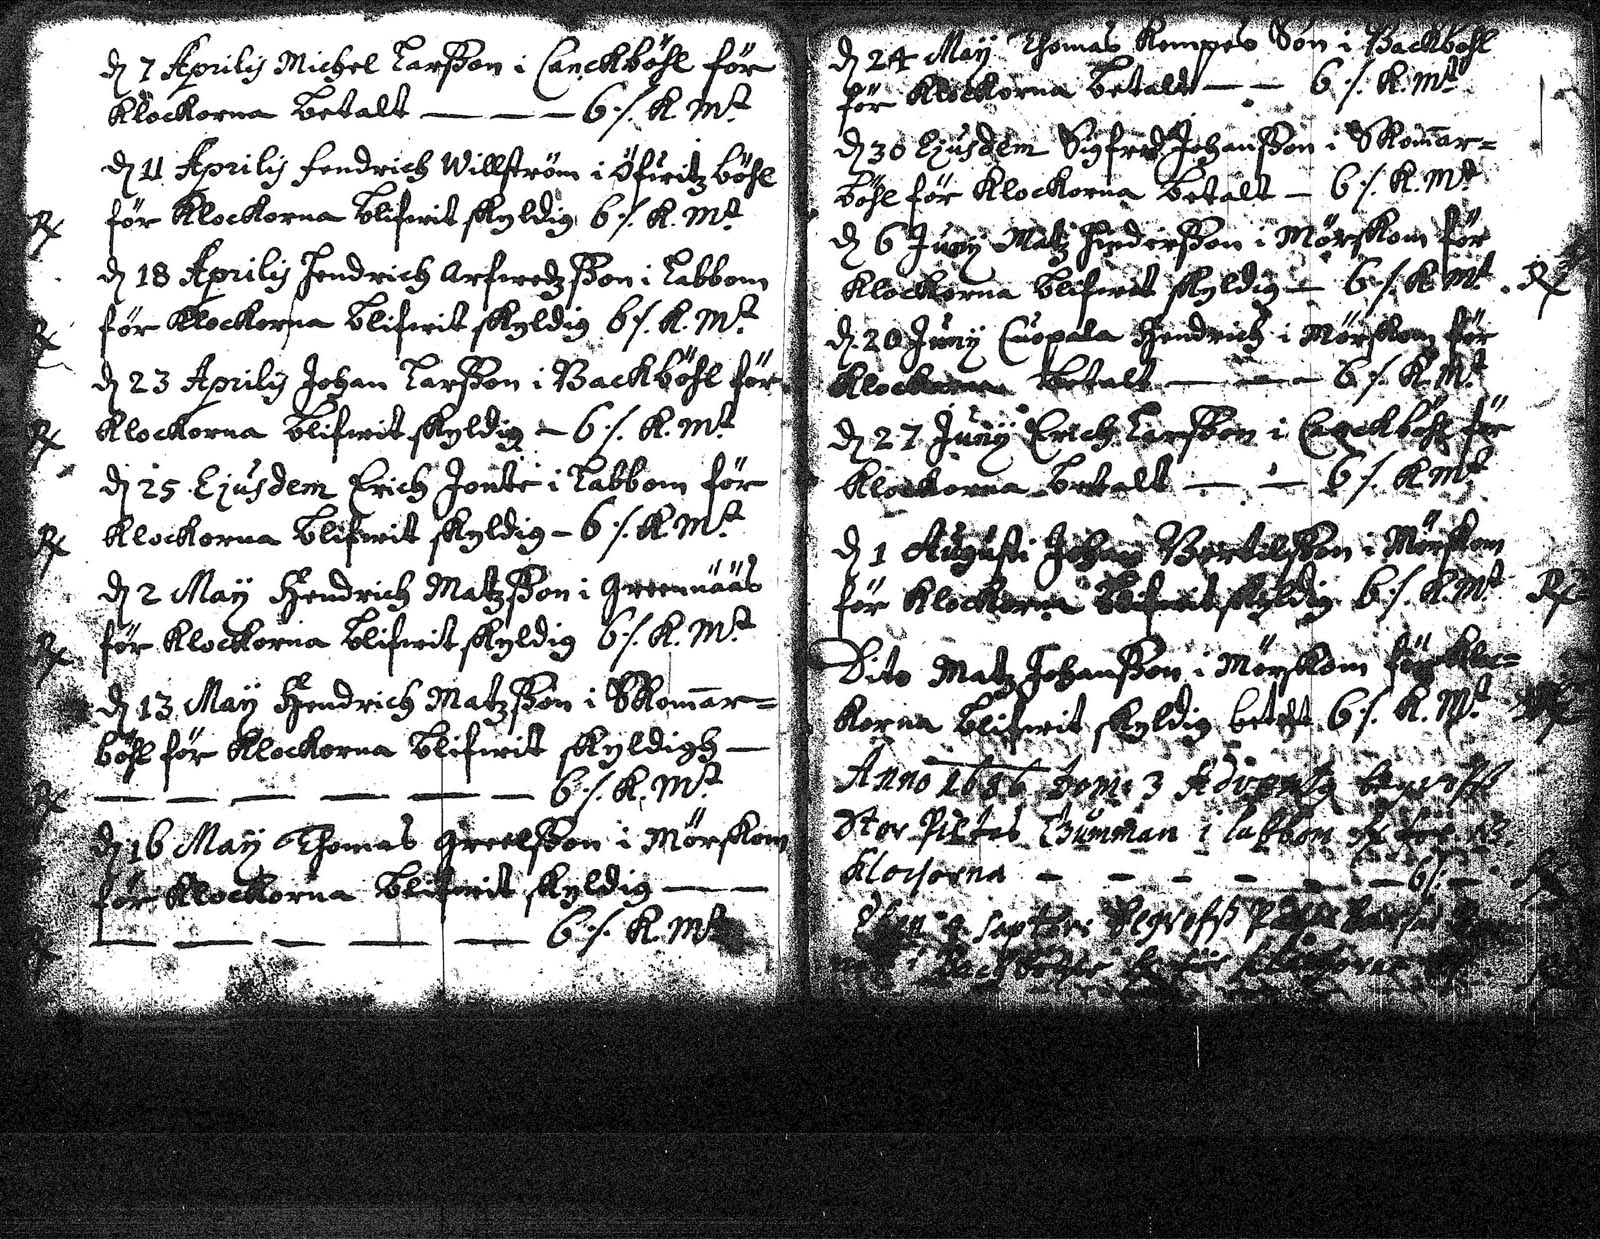 d 7 Aprilis Michel Larsson i Canckböhl för
Klockorna betalt — — — 6 s. K. Mt
d 11 Aprilis Fendrich Willström i Öfwitzböhl
Rx för Klockorna blifwit skyldig 6 s. K. Mt
d 18 Aprilis Hendrich Arfwedzsson i Labbom
Rx för Klockorna blifwit skyldig 6 s. K. Mt
d 23 Aprilis Johan Larsson i Backböhl för
Rx Klockorna blifwit skyldig — 6 s. K. Mt
d 25 Ejusdem Erich Jonte i Labbom för
Rx Klockorna blifwit skyldig — 6 s. K. Mt
d 2 May Hendrich Matzsson i Greennääs
Rx för Klockorna blifwit skyldig 6 s. K. Mt
d 13 May Hendrich Matzsson i Skommar=
böhl för Klockorna blifwit skyldigh —
Rx — — — — — — 6 s. K. Mt
d 16 May Thomas Greelsson i Mörskom
för Klockorna blifwit skyldig — —
— — — — — 6 s. K. Mt
d 24 May Thomas Kempes Son i Backböhl
för Klockorna betalt — — 6 s. K. Mt
d 30 Ejusdem Sigfred Johansson i Skommar=
böhl för Klockorna betalt — 6 s. K. Mt
d 6 Juny Matz Hindersson i Mörskom för
Klockorna blifwit skyldig — 6 s. K. Mt Rx
d 20 Juny Cuopala Hendrich i Mörskom för
Klockorna betalt — — — 6 s. K. Mt
d 27 Juny Erich Larsson i Canckböhl för
Klockorna betalt — — 6 s. K. Mt
d 1 Augusti Johan Bertilsson i Mörskom
för Klockorna blifwit skyldig 6 s. K. Mt Rx
Dito Matz Johansson i Mörskom för Kloc=
korna blifwit skyldig betalt 6 s. K. Mt
Anno 1686 Dom: 3 Advent begroffs
Stor Gumman i labbom för
Klockorna — — — — — — 6 s.
Septbr: Begroffs
i för klockorna